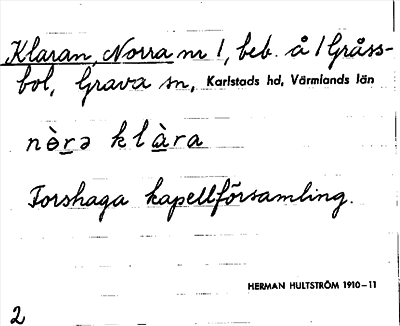 Klaran, Norra nr 1, beb. å 1 Gråss-
bol, Grava sn, Karlstads hd, Värmlands län
nὸ̲rə klὰ̲ra
Forshaga kapellförsamling.
HERMAN HULTSTRÖM 1910–11
2